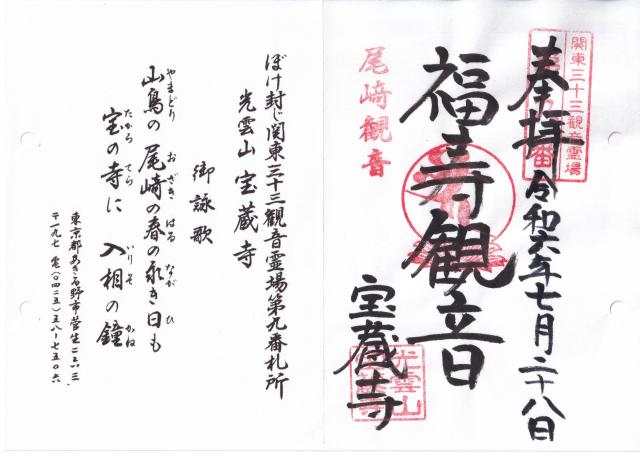 関東三十三観音霊場
奉拝 令和六年七月二十八日
福寿観音
尾﨑観音
宝蔵寺
光雲山
ぼけ封じ関東三十三観音霊場第九番札所
光雲山 宝蔵寺
御詠歌
やまどり おざき はる なが ひ
山鳥の 尾崎の春の永き日も
たから てら いりそ かね
宝の寺に 入相の鐘
東京都あきる野市菅生
〒一九七 電(〇四二五)五八ー七五〇六